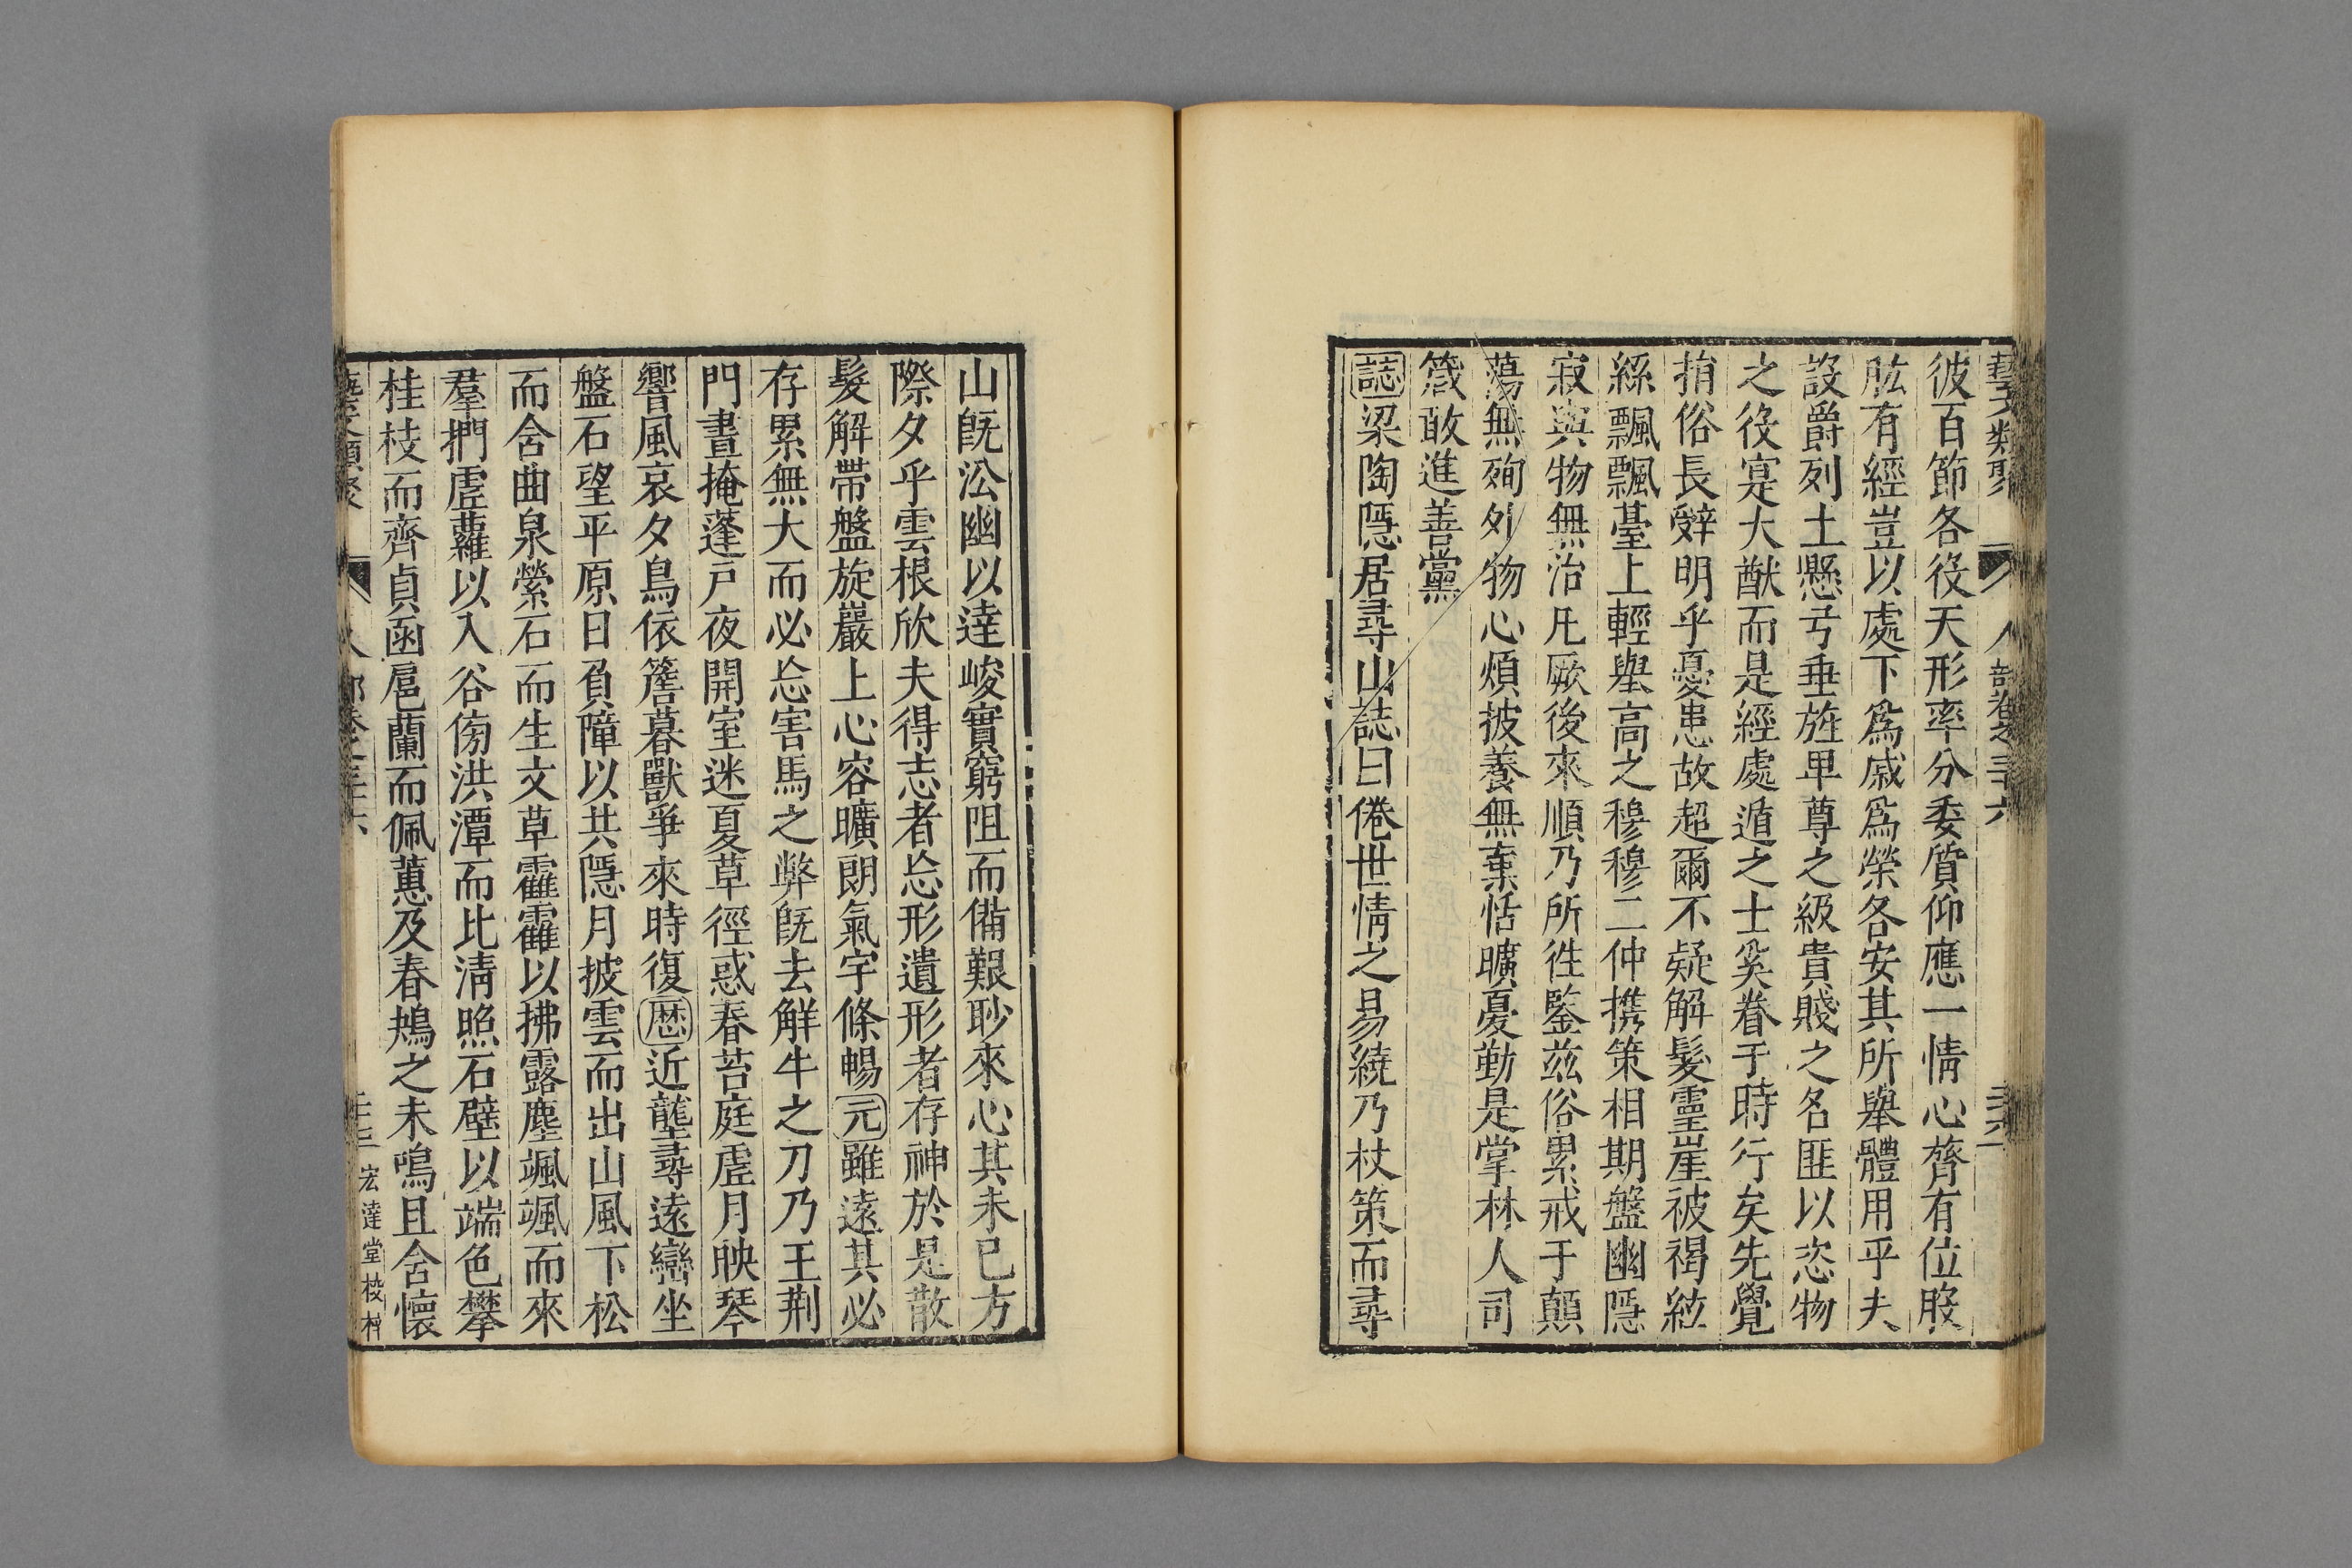 藝文類聚 人部卷之三十六
彼百節各役天形率分委質仰應一情心膂有位股
肱有經豈以處下爲戚爲榮各安其所舉體用乎夫
設爵列土懸弓垂旌卑尊之級貴賤之名匪以恣物
之役寔大猷而是經處遁之士奚眷于時行矣先覺
捎俗長辭明乎憂患故超爾不疑解髮靈崖被褐紘
絲飄飄臺上輕舉高之穆穆二仲携策相期盤幽隱
寂與物無治凡厥後來順乃所徃鑒茲俗累戒于顛
蕩無殉外物心煩披養無棄恬曠憂勤是掌林人司
箴敢進善黨
誌梁陶隱居尋山誌曰倦世情之易繞乃杖策而尋
山旣㳂幽以達峻實窮阻而備艱眇來心其未已方
際夕乎雲根欣夫得志者忘形遺形者存神於是散
髮解帶盤旋巖上心容曠朗氣宇條暢元雖遠其必
存累無大而必忘害馬之弊旣去解牛之刀乃王荆
門晝掩蓬戸夜開室迷夏草徑惑春苔庭虛月映琴
響風哀夕鳥依簷暮獸爭來時復歷近壟尋遠巒坐
盤石望平原日負障以共隱月披雲而出山風下松
而含曲泉縈石而生文草靃靃以拂露塵颯颯而來
羣捫虛蘿以入谷傍洪潭而比淸照石壁以端色攀
桂枝而齊貞函扈蘭而佩蕙及春鴂之未鳴且含懷
藝文類聚 人部卷之三十六 宏達堂校栞